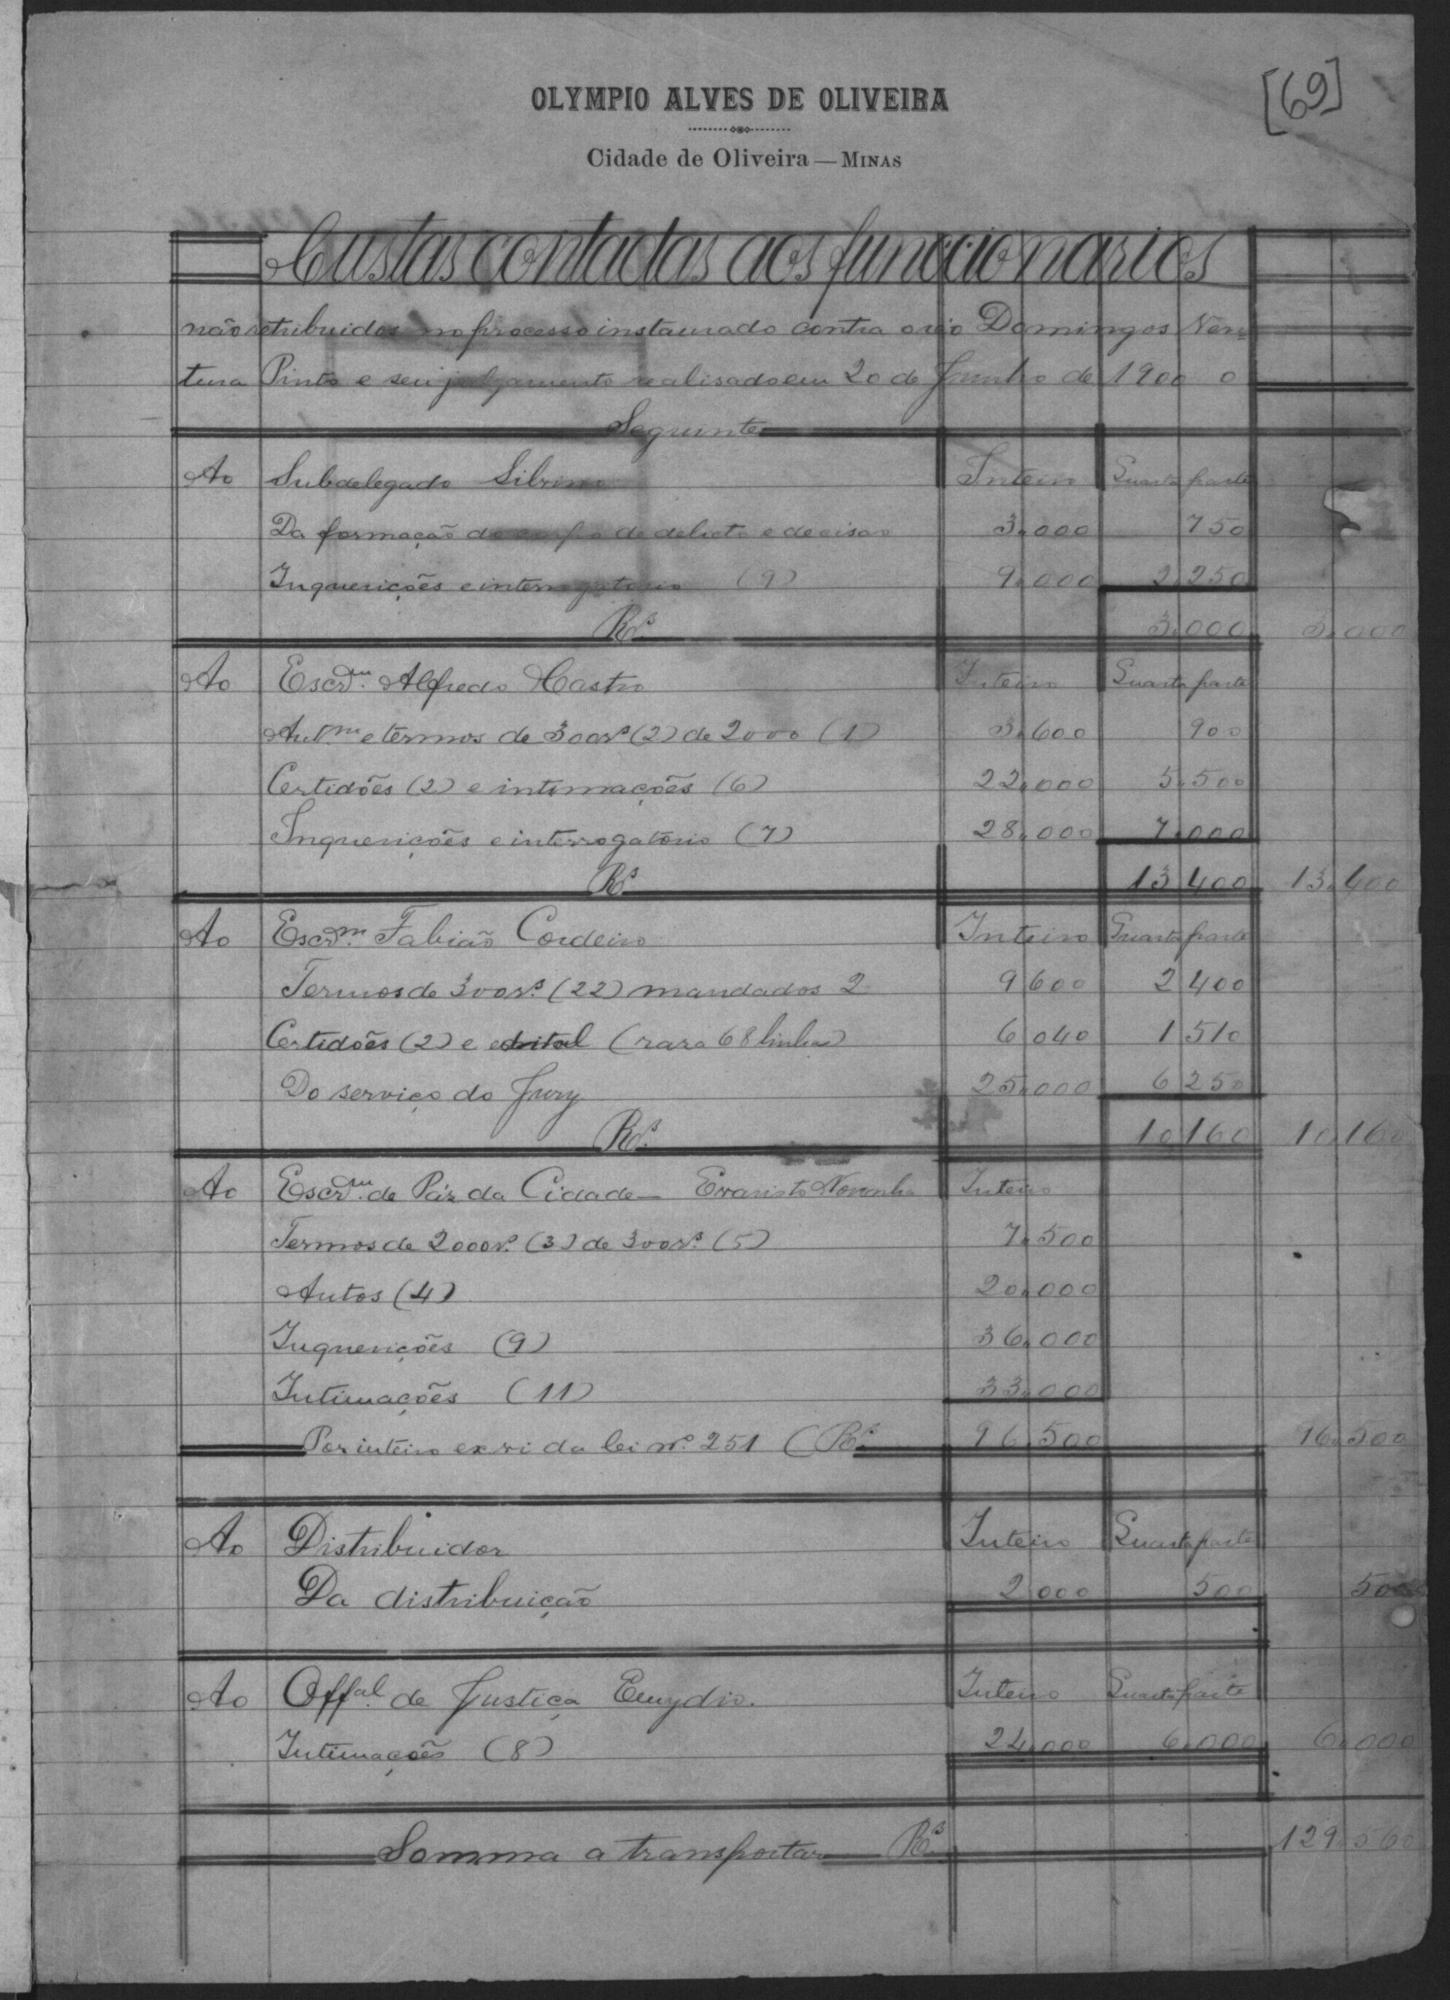 [69]
OLYMPIO ALVES DE OLIVEIRA
Cidade de Oliveira — MINAS
Custas contadas aos funccionarios
não retribuidos no processo instaurado contra o réo Domingos Ven=
tura Pinto e seu julgamento realisado em 20 de Junho de 1900 o
Seguinte
Ao Subdelegado Inteiro Quarta parte
Da formação do corpo de delicto e decisão 3.000 750
Inquerições e interrogatorio (9) 9.000 2.250
Rs. 3.000 3.000
Ao Escrm. Alfredo Castro Inteiro Quarta parte
Autm e termos de 300rs (2) de 2000 (1) 3.600 900
Certidões (2) e intimações (6) 22.000 5.500
Inquerições e interrogatorio (7) 28.000 7.000
Rs 13.400 13.400
Ao Escrm. Fabião Cordeiro Inteiro Quarta parte
Termos de 300rs. (22) mandados 2 9.600 2.400
Certidões (2) e edital (rasa 68 linhas) 6.040 1.510
Do serviço do Jury 25.000 6.250
Rs. 10.160 10.160
Ao Escrm. de Páz da Cidade — Evaristo Noronha Inteiro
Termos de 2000rs. (3) de 300rs. (5) 7.500
Autos (4) 20.000
Inquerições (9) 36.000
Intimações (11) 33.000
Por inteiro ex vi da lei nº. 251 (Rs. 96.500 96.500
Ao Distribuidor Inteiro Quarta parte
Da distribuição 2.000 500 500
Ao Offal. de Justiça Emydio. Inteiro Quarta parte
Intimações (8) 24.000 6.000 6.000
Somma a transportar Rs. 129.560